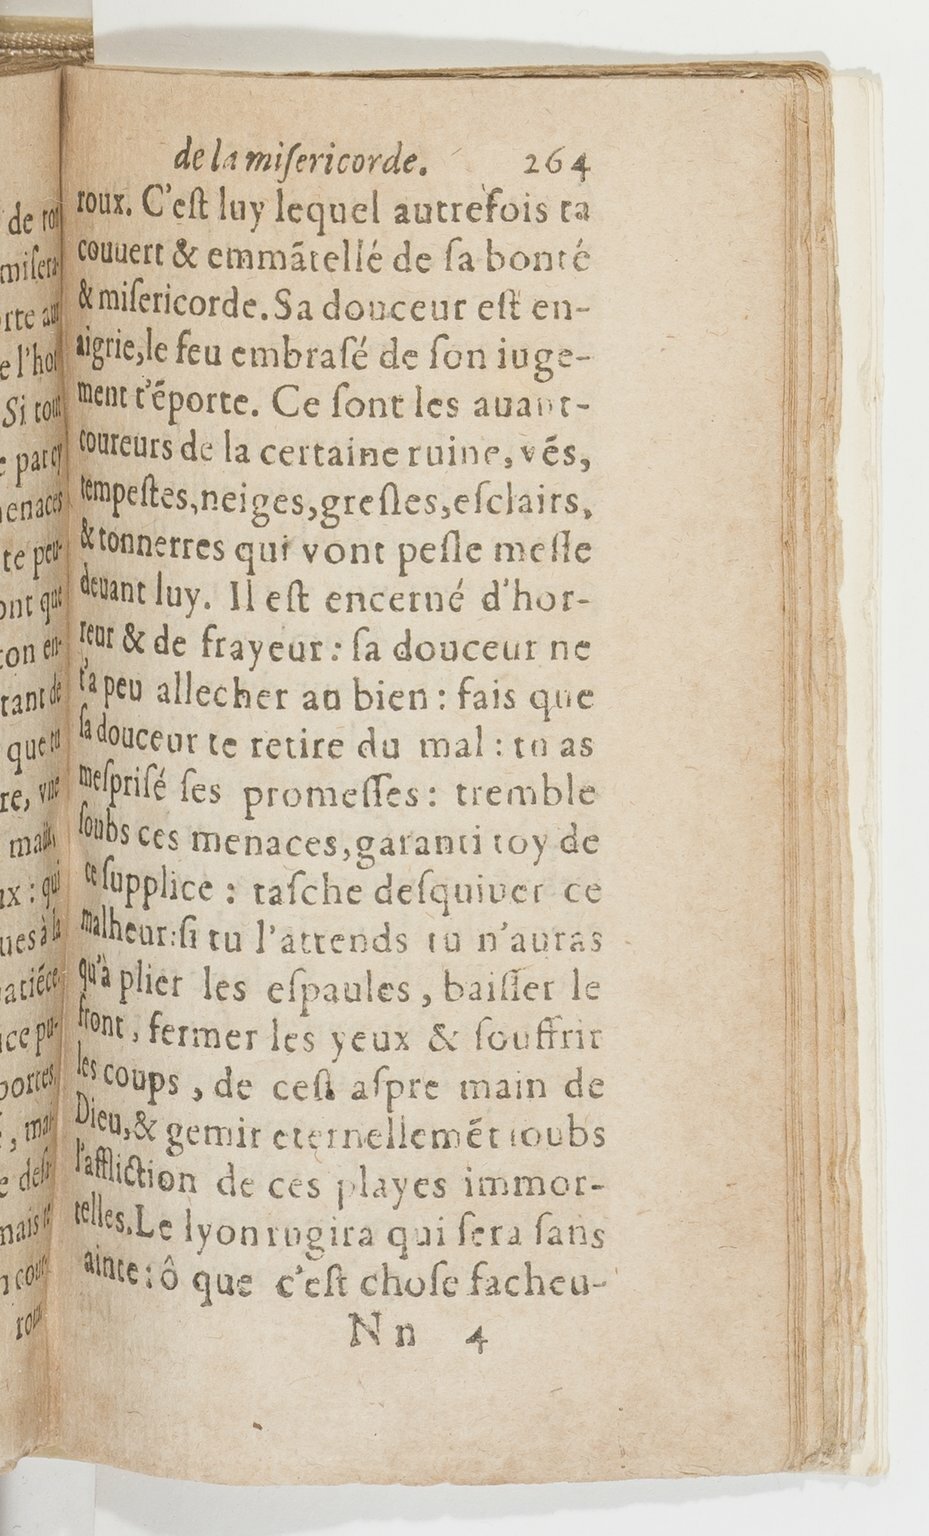 de la miſericorde. 264
roux. C'eſt luy lequel autrefois ta
couuert & emmãtellé de ſa bonté
& miſericorde. Sa douceur eſt en-
aigrie, le feu embraſé de ſon iuge-
ment t'ẽporte. Ce ſont les auant-
coureurs de la certaine ruine, vẽs,
tempeſtes, neiges, greſles, eſclairs,
& tonnerres qui vont peſle meſle
deuant luy. Il eſt encerné d'hor-
reur & de frayeur: ſa douceur ne
t'a peu allecher au bien: fais que
ſa douceur te retire du mal: tu as
meſpriſé ſes promeſſes: tremble
ſoubs ces menaces, garanti toy de
ce ſupplice: taſche deſquiuer ce
malheur: ſi tu l'attends tu n'auras
qu'à plier les eſpaules, baiſſer le
front, fermer les yeux & ſouffrir
les coups, de ceſt aſpre main de
Dieu, & gemir eternellemẽt ſoubs
l'affliction de ces playes immor-
telles. Le lyon rugira qui ſera ſans
ainte: ô que c'eſt choſe facheu-
Nn 4